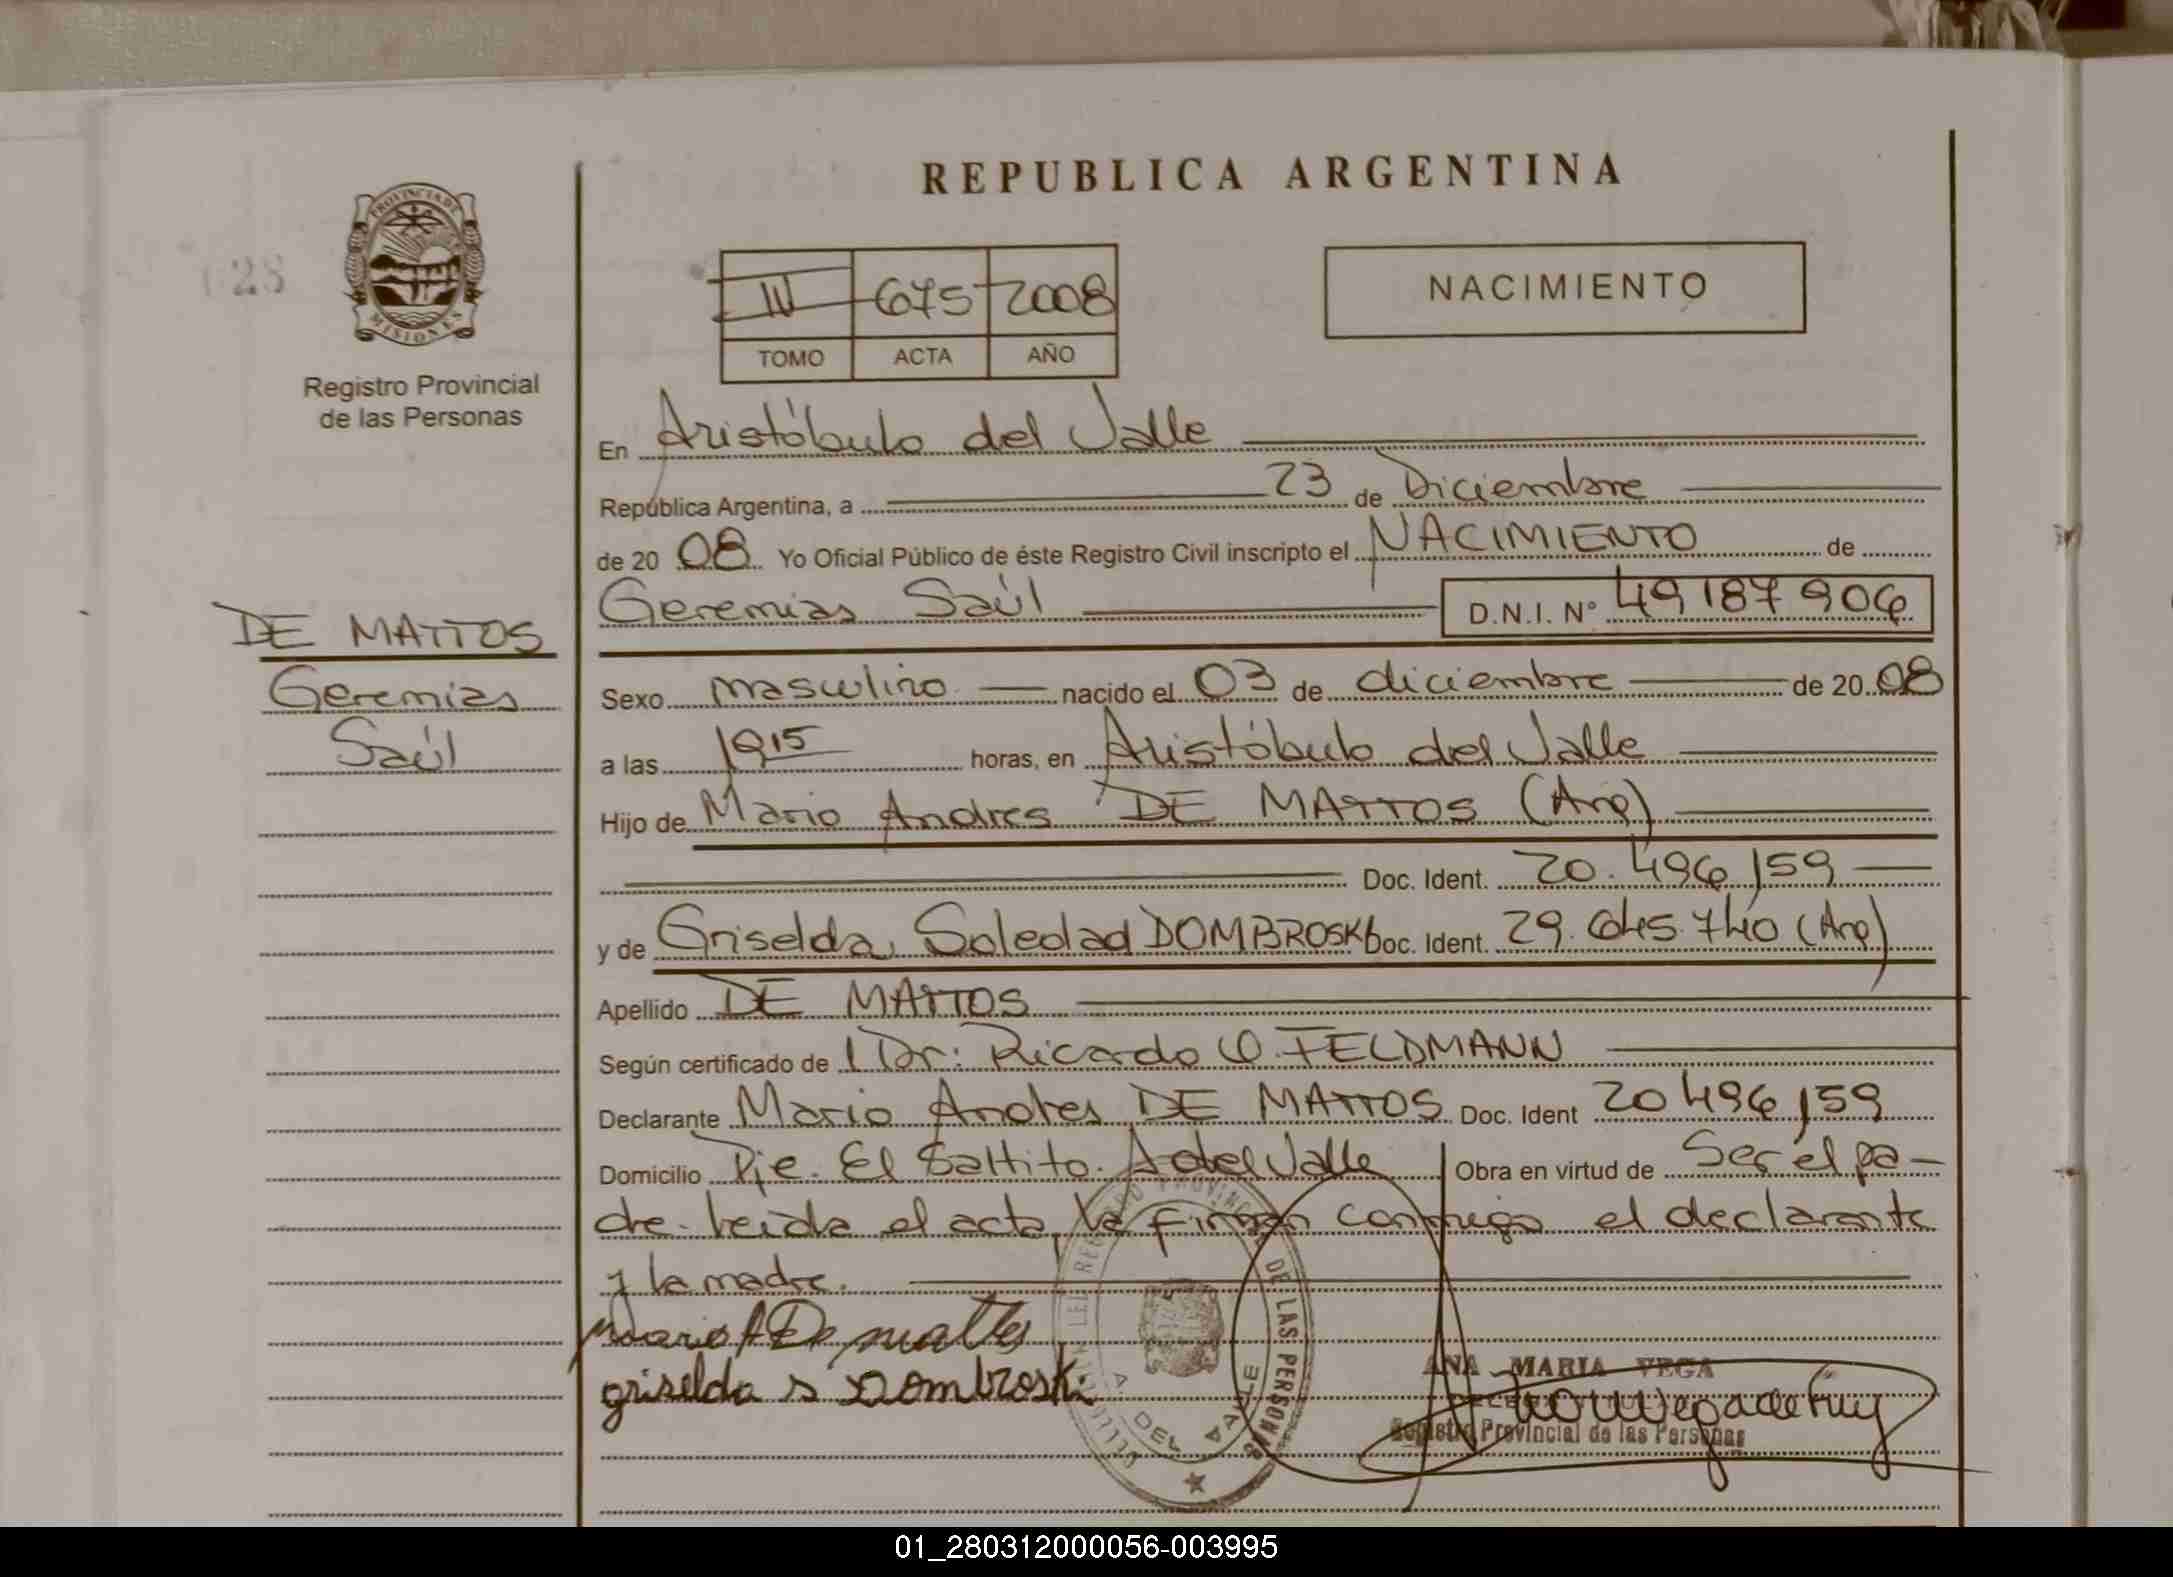 REPUBLICA ARGENTINA
PROVINCIA DE MISIONES
Registro Provincial
de las Personas
NACIMIENTO
IV 675 2008
TOMO ACTA AÑO
En Aristóbulo del Valle
República Argentina, a 23 de Diciembre
de 20 08 Yo Oficial Público de éste Registro Civil inscripto el NACIMIENTO de
Geremias Saúl D.N.I. Nº 49187906
DE MATTOS
Geremias
Saúl
Sexo masculino nacido el 03 de diciembre de 20 08
a las 19 15 horas, en Aristóbulo del Valle
Hijo de Mario Andres DE MATTOS (Arg)
Doc. Ident. 20.496159
y de Griselda Soledad DOMBROSKI Doc. Ident. 29.645.740 (Arg)
Apellido DE MATTOS
Según certificado de Dr: Ricardo O. FELDMANN
Declarante Mario Andres DE MATTOS Doc. Ident 20496159
Domicilio Pje. El Saltito. A del Valle Obra en virtud de Ser el pa-
dre. Leida el acta, la firman conmigo el declarante
y la madre.
Mario A De mattos
griselda s Dombroski
DEL VALLE
DE LAS PERSONAS
ANA MARIA VEGA
Registro Provincial de las Personas
01_280312000056-003995